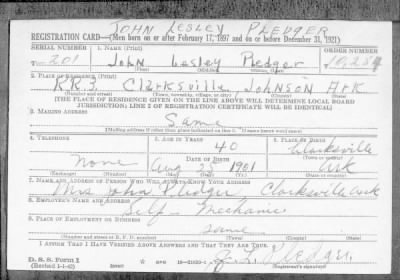 JOHN LESLEY PLEDGER
REGISTRATION CARD—(Men born on or after February 17, 1897 and on or before December 31, 1921)
SERIAL NUMBER 1. NAME (Print) ORDER NUMBER
T 201 John Lesley Pledger 10,284
2. PLACE OF RESIDENCE (Print)
R.R.3 Clarksville, Johnson Ark
(Number and street) (Town, township, village, or city) (County) (State)
[THE PLACE OF RESIDENCE GIVEN ON THE LINE ABOVE WILL DETERMINE LOCAL BOARD
JURISDICTION; LINE 2 OF REGISTRATION CERTIFICATE WILL BE IDENTICAL]
3. MAILING ADDRESS
Same
[Mailing address if other than place indicated on line 2. If same insert word same]
4. TELEPHONE 5. AGE IN YEARS 6. PLACE OF BIRTH
40 Clarksville
None DATE OF BIRTH (Town or county)
Aug 1901 Ark
(Exchange) (Number) (Mo.) (Day) (Yr.) (State or country)
7. NAME AND ADDRESS OF PERSON WHO WILL ALWAYS KNOW YOUR ADDRESS
Mrs John Pledger Clarksville Ark
8. EMPLOYER'S NAME AND ADDRESS
Self - Mechanic
9. PLACE OF EMPLOYMENT OR BUSINESS
same
(Number and street or R. F. D. number) (Town) (County) (State)
I AFFIRM THAT I HAVE VERIFIED ABOVE ANSWERS AND THAT THEY ARE TRUE.
D. S. S. Form 1 J. L. Pledger
(Revised 1-1-42) (over) (Registrant's signature)